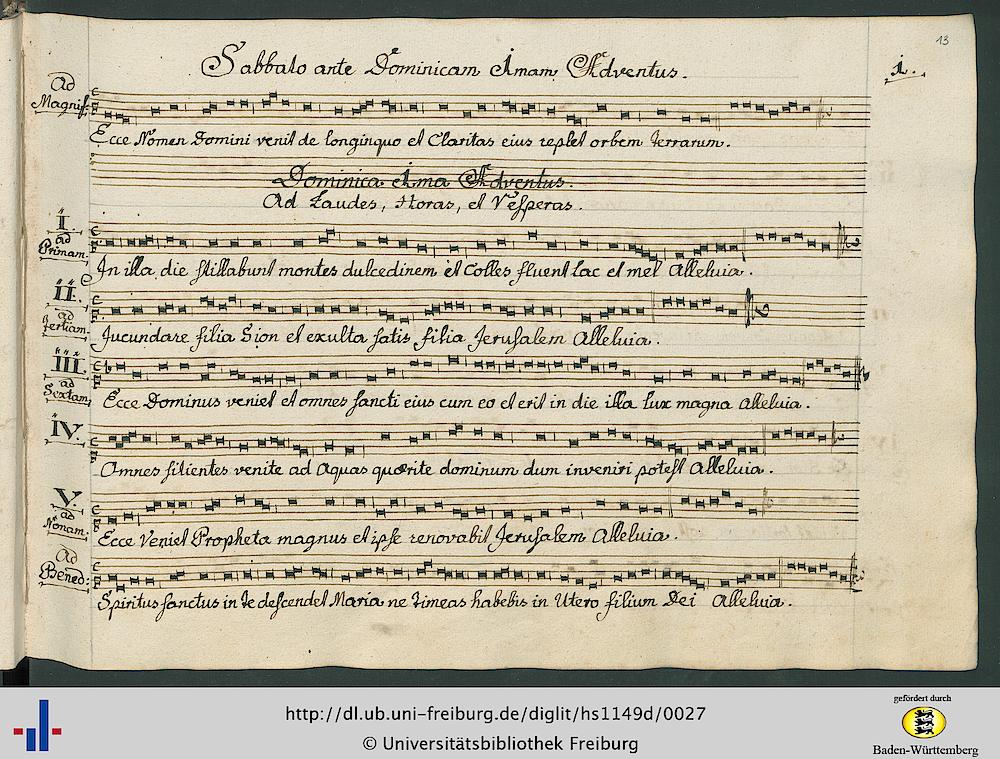 13
Sabbato ante Dominicam Imam Adventus.
1.
Ad Magnif:
Ecce Nomen Domini venit de longinquo et Claritas eius replet orbem terrarum.
Dominica Ima Adventus.
Ad Laudes, Horas, et Vesperas.
I. ad Primam.
In illa die stillabunt montes dulcedinem et Colles fluent lac et mel Alleluia.
II. ad tertiam.
Jucundare filia Sion et exulta satis filia Jerusalem Alleluia.
III. ad Sextam.
Ecce Dominus veniet et omnes sancti eius cum eo et erit in die illa lux magna Alleluia.
IV.
Omnes sitientes venite ad Aquas quærite dominum dum inveniri potest Alleluia.
V. ad Nonam.
Ecce Veniet Propheta magnus et ipse renovabit Jerusalem Alleluia.
Ad Bened:
Spiritus sanctus in te descendet Maria ne timeas habebis in Utero filium Dei Alleluia.
http://dl.ub.uni-freiburg.de/diglit/hs1149d/0027
© Universitätsbibliothek Freiburg
gefördert durch
Baden-Württemberg